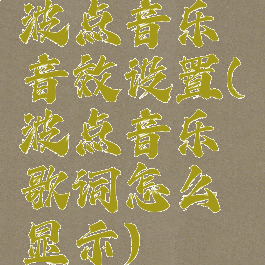 波点音乐
音效设置(
波点音乐
歌词怎么
显示)